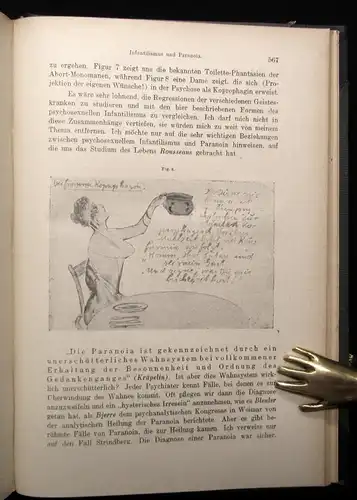 Infantilismus und Paranoia. 567
zu ergehen. Figur 7 zeigt uns die bekannten Toilette-Phantasien der
Abort-Monomanen, während Figur 8 eine Dame zeigt, die sich (Pro-
jektion der eigenen Wünsche!) in der Psychose als Kopcophagin erweist.
Es wäre sehr lohnend, die Regressionen der verschiedenen Geistes-
kranken zu studieren und mit den hier beschriebenen Formen des
psychosexuellen Infantilismus zu vergleichen. Ich darf mich nicht in
diese Zusammenhänge vertiefen, sie würden mich zu weit von meinem
Thema entfernen. Ich möchte nur auf die sehr wichtigen Beziehungen
zwischen psychosexuellem Infantilismus und Paranoia hinweisen, auf
die uns das Studium des Lebens Rousseaus gebracht hat.
Fig. 8.
„Die Paranoia ist gekennzeichnet durch ein
unerschütterliches Wahnsystem bei vollkommener
Erhaltung der Besonnenheit und Ordnung des
Gedankenganges“ (Kräpelin). Ist aber dies Wahnsystem wirk-
lich unerschütterlich? Jeder Psychiater kennt Fälle, bei denen es zur
Überwindung des Wahnes kommt. Oft pflegen wir dann die Diagnose
anzuzweifeln und ein „hysterisches Irresein“ anzunehmen, wie es Bleuler
getan hat, als Bjerre dem psychanalytischen Kongresse in Weimar von
der analytischen Heilung der Paranoia berichtete. Aber es gibt be-
rühmte Fälle von Paranoia, die zur Heilung kamen. Ich verweise nur
auf den Fall Strindberg. Die Diagnose einer Paranoia war sicher.